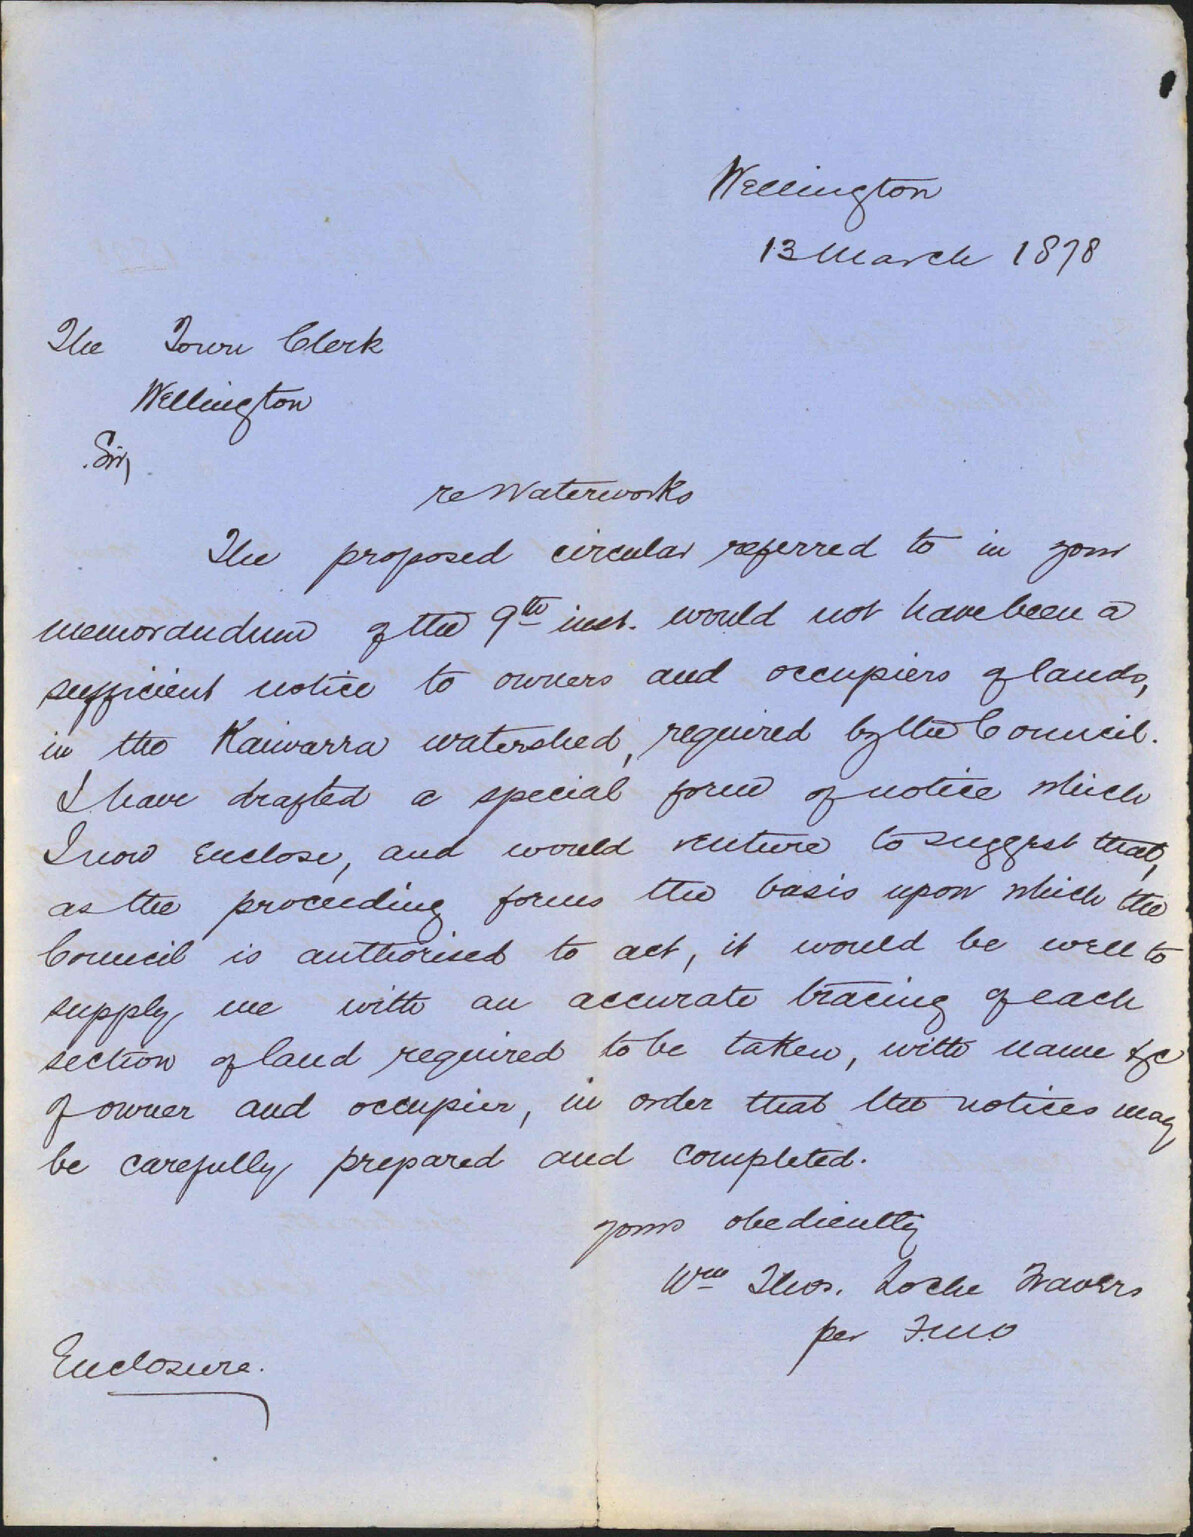 Wellington
13 March 1878
The Town Clerk
Wellington
Sir,
re Waterworks
The proposed circular referred to in your
memordudum of the 9th inst. would not have been a
sufficient notice to owners and occupiers of lands,
in the Kaiwarra watershed, required by the Council.
I have drafted a special form of notice which
I now enclose, and would venture to suggest that,
as the proceeding forms the basis upon which the
Council is authorised to act, it would be well to
supply me with an accurate tracing of each
section of land required to be taken, with name &c
of owner and occupier, in order that the notices may
be carefully prepared and completed.
yours obediently
Wm Thos. Locke Travers
per
Enclosure.